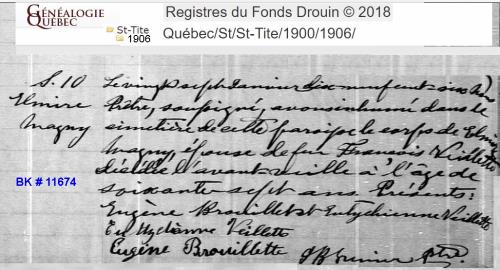 GÉNÉALOGIE
QUÉBEC
Registres du Fonds Drouin © 2018
St-Tite
1906
Québec/St/St-Tite/1900/1906/
S. 10 Le vingt sept Janvier dix-neuf cent six
Elmire prêtre, soussigné, avons inhumé dans le
Magny cimetière de cette paroisse le corps de Elmire
Magny, épouse de feu François Veillette
décédée l'avant veille à l'âge de
BK # 11674
soixante sept ans Présents:
Eugène Brouillet et Eutychienne Veillette
Eutychianne Veillette
Eugène Brouillette